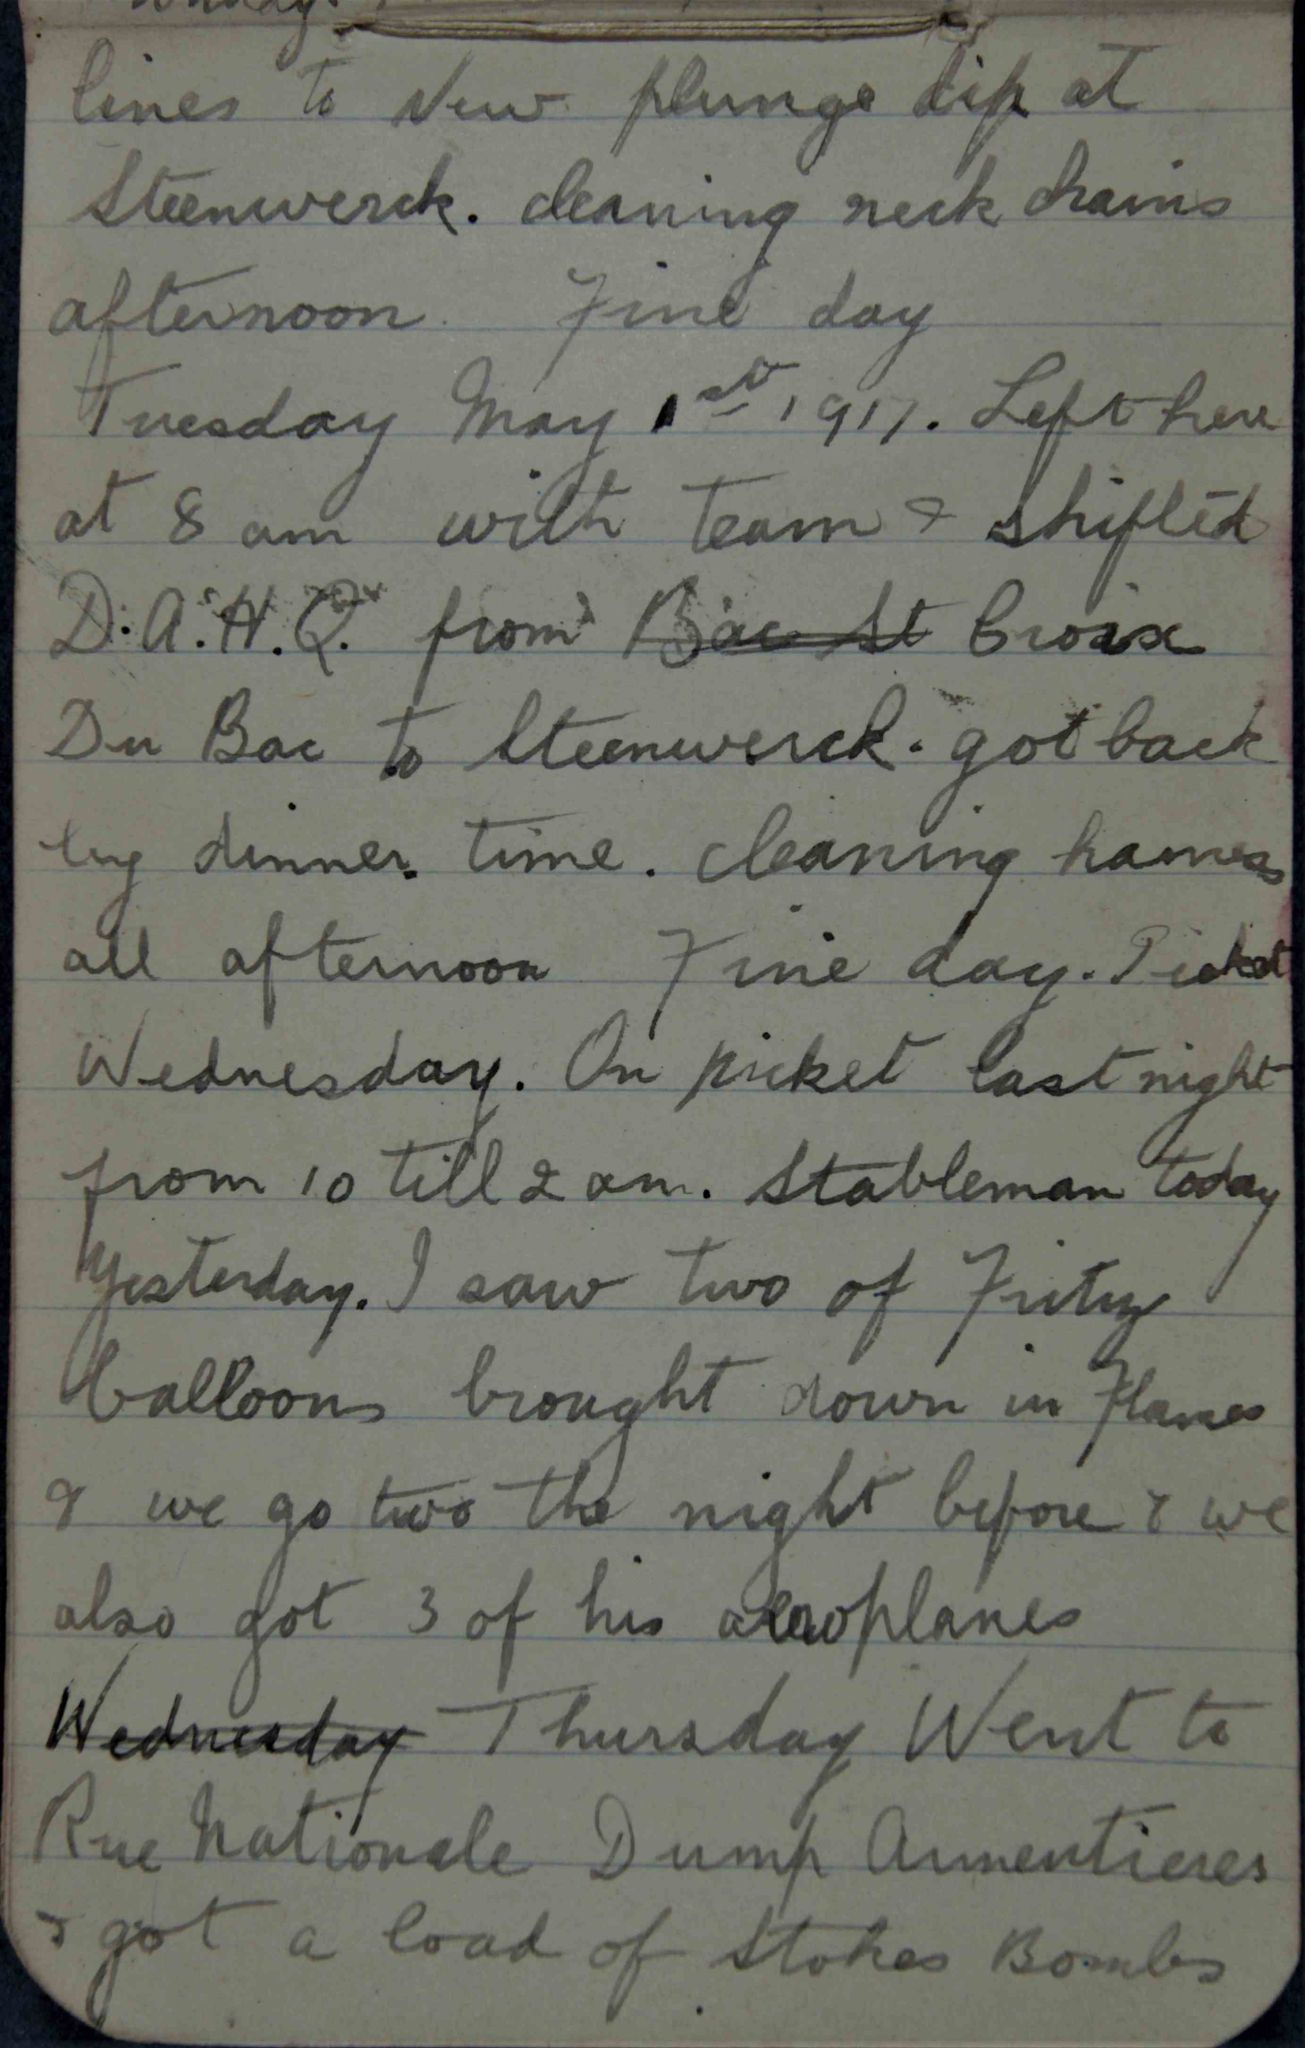 lines to New plunge dip at
Steenwerck. cleaning neck chains
afternoon. Fine day
Tuesday May 1st 1917. Left here
at 8 am with team & shifted
D.A.H.Q. from Bac St Croix
Du Bac to Steenwerck. got back
by dinner time. cleaning harness
all afternoon Fine day. Picket
Wednesday. On picket last night
from 10 till 2 am. Stableman today
Yesterday. I saw two of Fritz
balloons brought down in Flames
& we go two the night before & we
also got 3 of his aeroplanes
Wednesday Thursday Went to
Rue Nationale Dump Armentieres
& got a load of Stokes Bombs